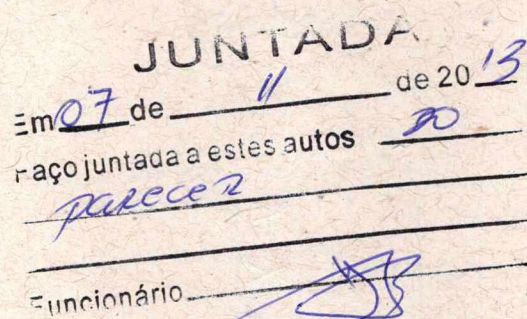 JUNTADA
Em 07 de 11 de 2013
Faço juntada a estes autos DO
parecer
Funcionário